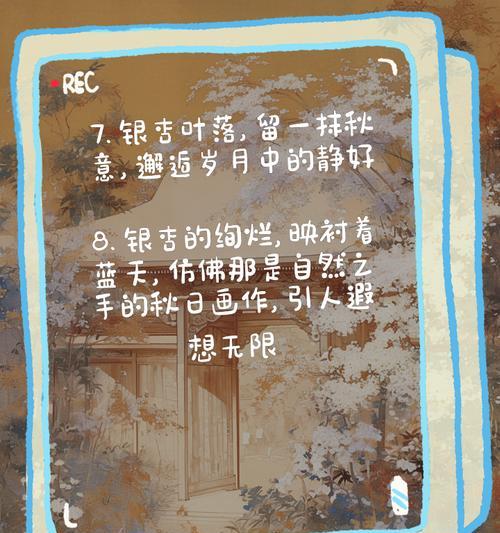 REC
7. 银杏叶落, 留一抹秋
意, 邂逅岁月中的静好
8. 银杏的绚烂, 映衬着
蓝天, 仿佛那是自然之
手的秋日画作, 引人遐
想无限